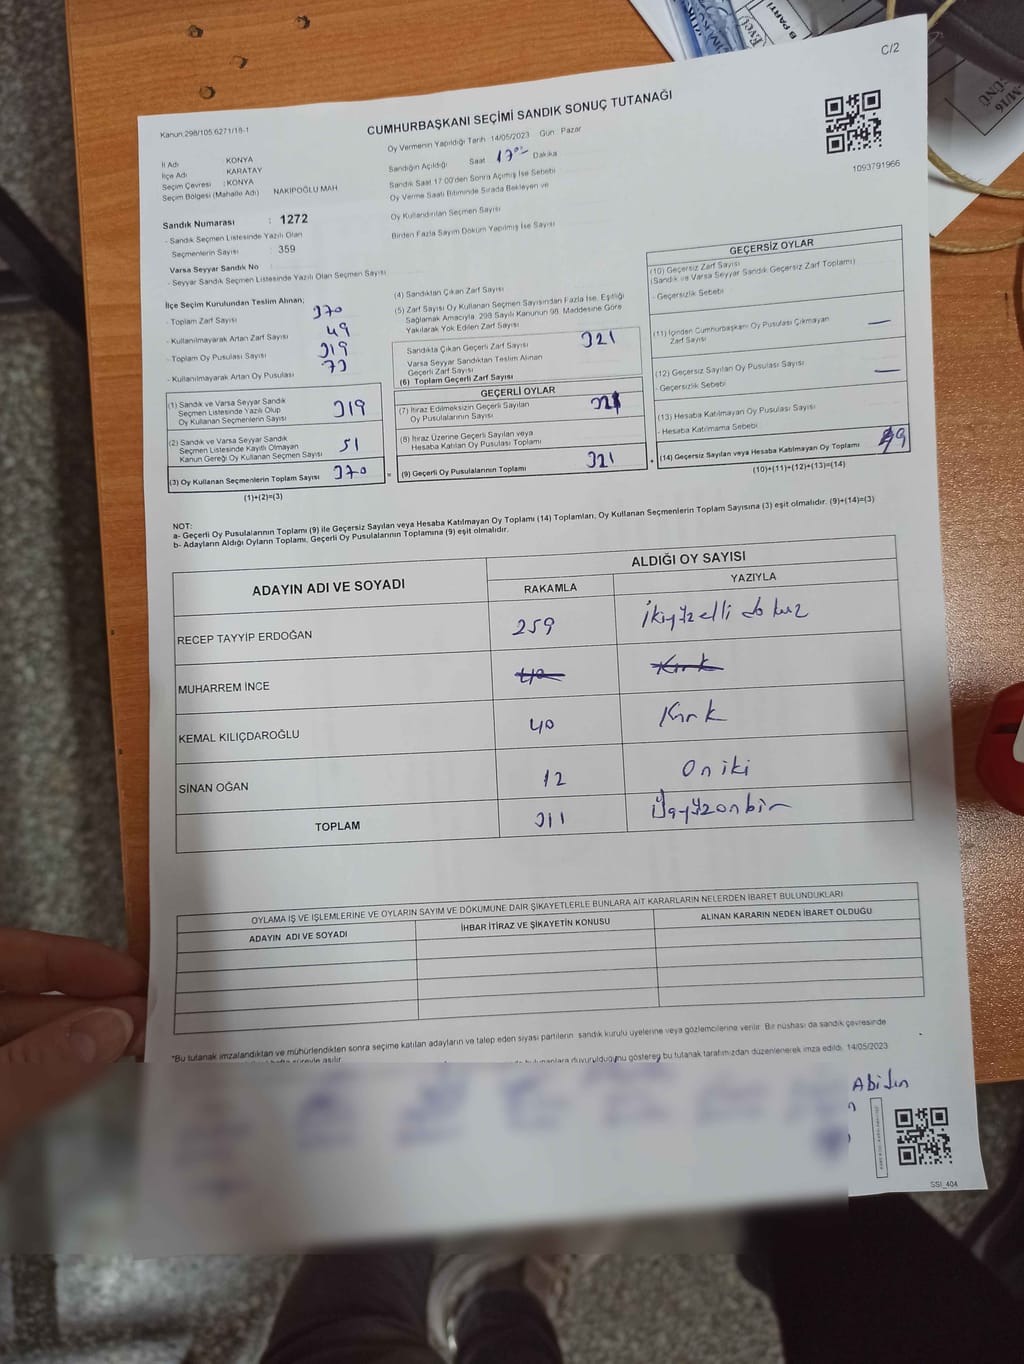 C/2
Kanun:298/105 6271/18-1
CUMHURBAŞKANI SEÇİMİ SANDIK SONUÇ TUTANAĞI
Oy Vermenin Yapıldığı Tarih 14/05/2023 Gün Pazar
1093791966
İl Adı : KONYA
İlçe Adı : KARATAY
Seçim Çevresi : KONYA
Seçim Bölgesi (Mahalle Adı) NAKİPOĞLU MAH
Sandığın Açıldığı Saat 17°° Dakika
Sandık Saat 17 00'den Sonra Açımış İse Sebebi
Oy Verme Saati Bitiminde Sırada Bekleyen ve
Oy Kullandırılan Seçmen Sayısı
Birden Fazla Sayım Döküm Yapılmış İse Sayısı
Sandık Numarası : 1272
- Sandık Seçmen Listesinde Yazılı Olan
Seçmenlerin Sayısı : 359
Varsa Seyyar Sandık No :
- Seyyar Sandık Seçmen Listesinde Yazılı Olan Seçmen Sayısı
İlçe Seçim Kurulundan Teslim Alınan;
- Toplam Zarf Sayısı 370
- Kullanılmayarak Artan Zarf Sayısı 49
- Toplam Oy Pusulası Sayısı 319
- Kullanılmayarak Artan Oy Pusulası 73
(1) Sandık ve Varsa Seyyar Sandık
Seçmen Listesinde Yazılı Olup
Oy Kullanan Seçmenlerin Sayısı 319
(2) Sandık ve Varsa Seyyar Sandık
Seçmen Listesinde Kayıtlı Olmayan
Kanun Gereği Oy Kullanan Seçmen Sayısı 51
(3) Oy Kullanan Seçmenlerin Toplam Sayısı 370
(1)+(2)=(3)
(4) Sandıktan Çıkan Zarf Sayısı
(5) Zarf Sayısı Oy Kullanan Seçmen Sayısından Fazla İse, Eşitliği
Sağlamak Amacıyla, 298 Sayılı Kanunun 98. Maddesine Göre
Yakılarak Yok Edilen Zarf Sayısı
Sandıkta Çıkan Geçerli Zarf Sayısı 321
Varsa Seyyar Sandıktan Teslim Alınan
Geçerli Zarf Sayısı
(6) Toplam Geçerli Zarf Sayısı
GEÇERLİ OYLAR
(7) İtiraz Edilmeksizin Geçerli Sayılan
Oy Pusulalarının Sayısı 321
(8) İtiraz Üzerine Geçerli Sayılan veya
Hesaba Katılan Oy Pusulası Toplamı
= (9) Geçerli Oy Pusulalarının Toplamı 321
GEÇERSİZ OYLAR
(10) Geçersiz Zarf Sayısı
(Sandık ve Varsa Seyyar Sandık Geçersiz Zarf Toplamı)
- Geçersizlik Sebebi
(11) İçinden Cumhurbaşkanı Oy Pusulası Çıkmayan
Zarf Sayısı —
(12) Geçersiz Sayılan Oy Pusulası Sayısı —
- Geçersizlik Sebebi
(13) Hesaba Katılmayan Oy Pusulası Sayısı
- Hesaba Katılmama Sebebi
+ (14) Geçersiz Sayılan veya Hesaba Katılmayan Oy Toplamı
(10)+(11)+(12)+(13)=(14)
NOT:
a- Geçerli Oy Pusulalarının Toplamı (9) ile Geçersiz Sayılan veya Hesaba Katılmayan Oy Toplamı (14) Toplamları, Oy Kullanan Seçmenlerin Toplam Sayısına (3) eşit olmalıdır. (9)+(14)=(3)
b- Adayların Aldığı Oyların Toplamı, Geçerli Oy Pusulalarının Toplamına (9) eşit olmalıdır.
ADAYIN ADI VE SOYADI ALDIĞI OY SAYISI
RAKAMLA YAZIYLA
RECEP TAYYİP ERDOĞAN 259 İkiyüzelli dokuz
MUHARREM İNCE 40 Kırk
KEMAL KILIÇDAROĞLU 40 Kırk
SİNAN OĞAN 12 On iki
TOPLAM 311 Üçyüzonbir
OYLAMA İŞ VE İŞLEMLERİNE VE OYLARIN SAYIM VE DÖKÜMÜNE DAİR ŞİKAYETLERLE BUNLARA AİT KARARLARIN NELERDEN İBARET BULUNDUKLARI
ADAYIN ADI VE SOYADI İHBAR İTİRAZ VE ŞİKAYETİN KONUSU ALINAN KARARIN NEDEN İBARET OLDUĞU
*Bu tutanak imzalandıktan ve mühürlendikten sonra seçime katılan adayların ve talep eden siyası partilerin sandık kurulu üyelerine veya gözlemcilerine verilir. Bir nüshası da sandık çevresinde
duyurulduğunu gösterey bu tutanak tarafımızdan düzenlenerek imza edildi. 14/05/2023
Abidin
SSI_404
B PARTİ
Evet